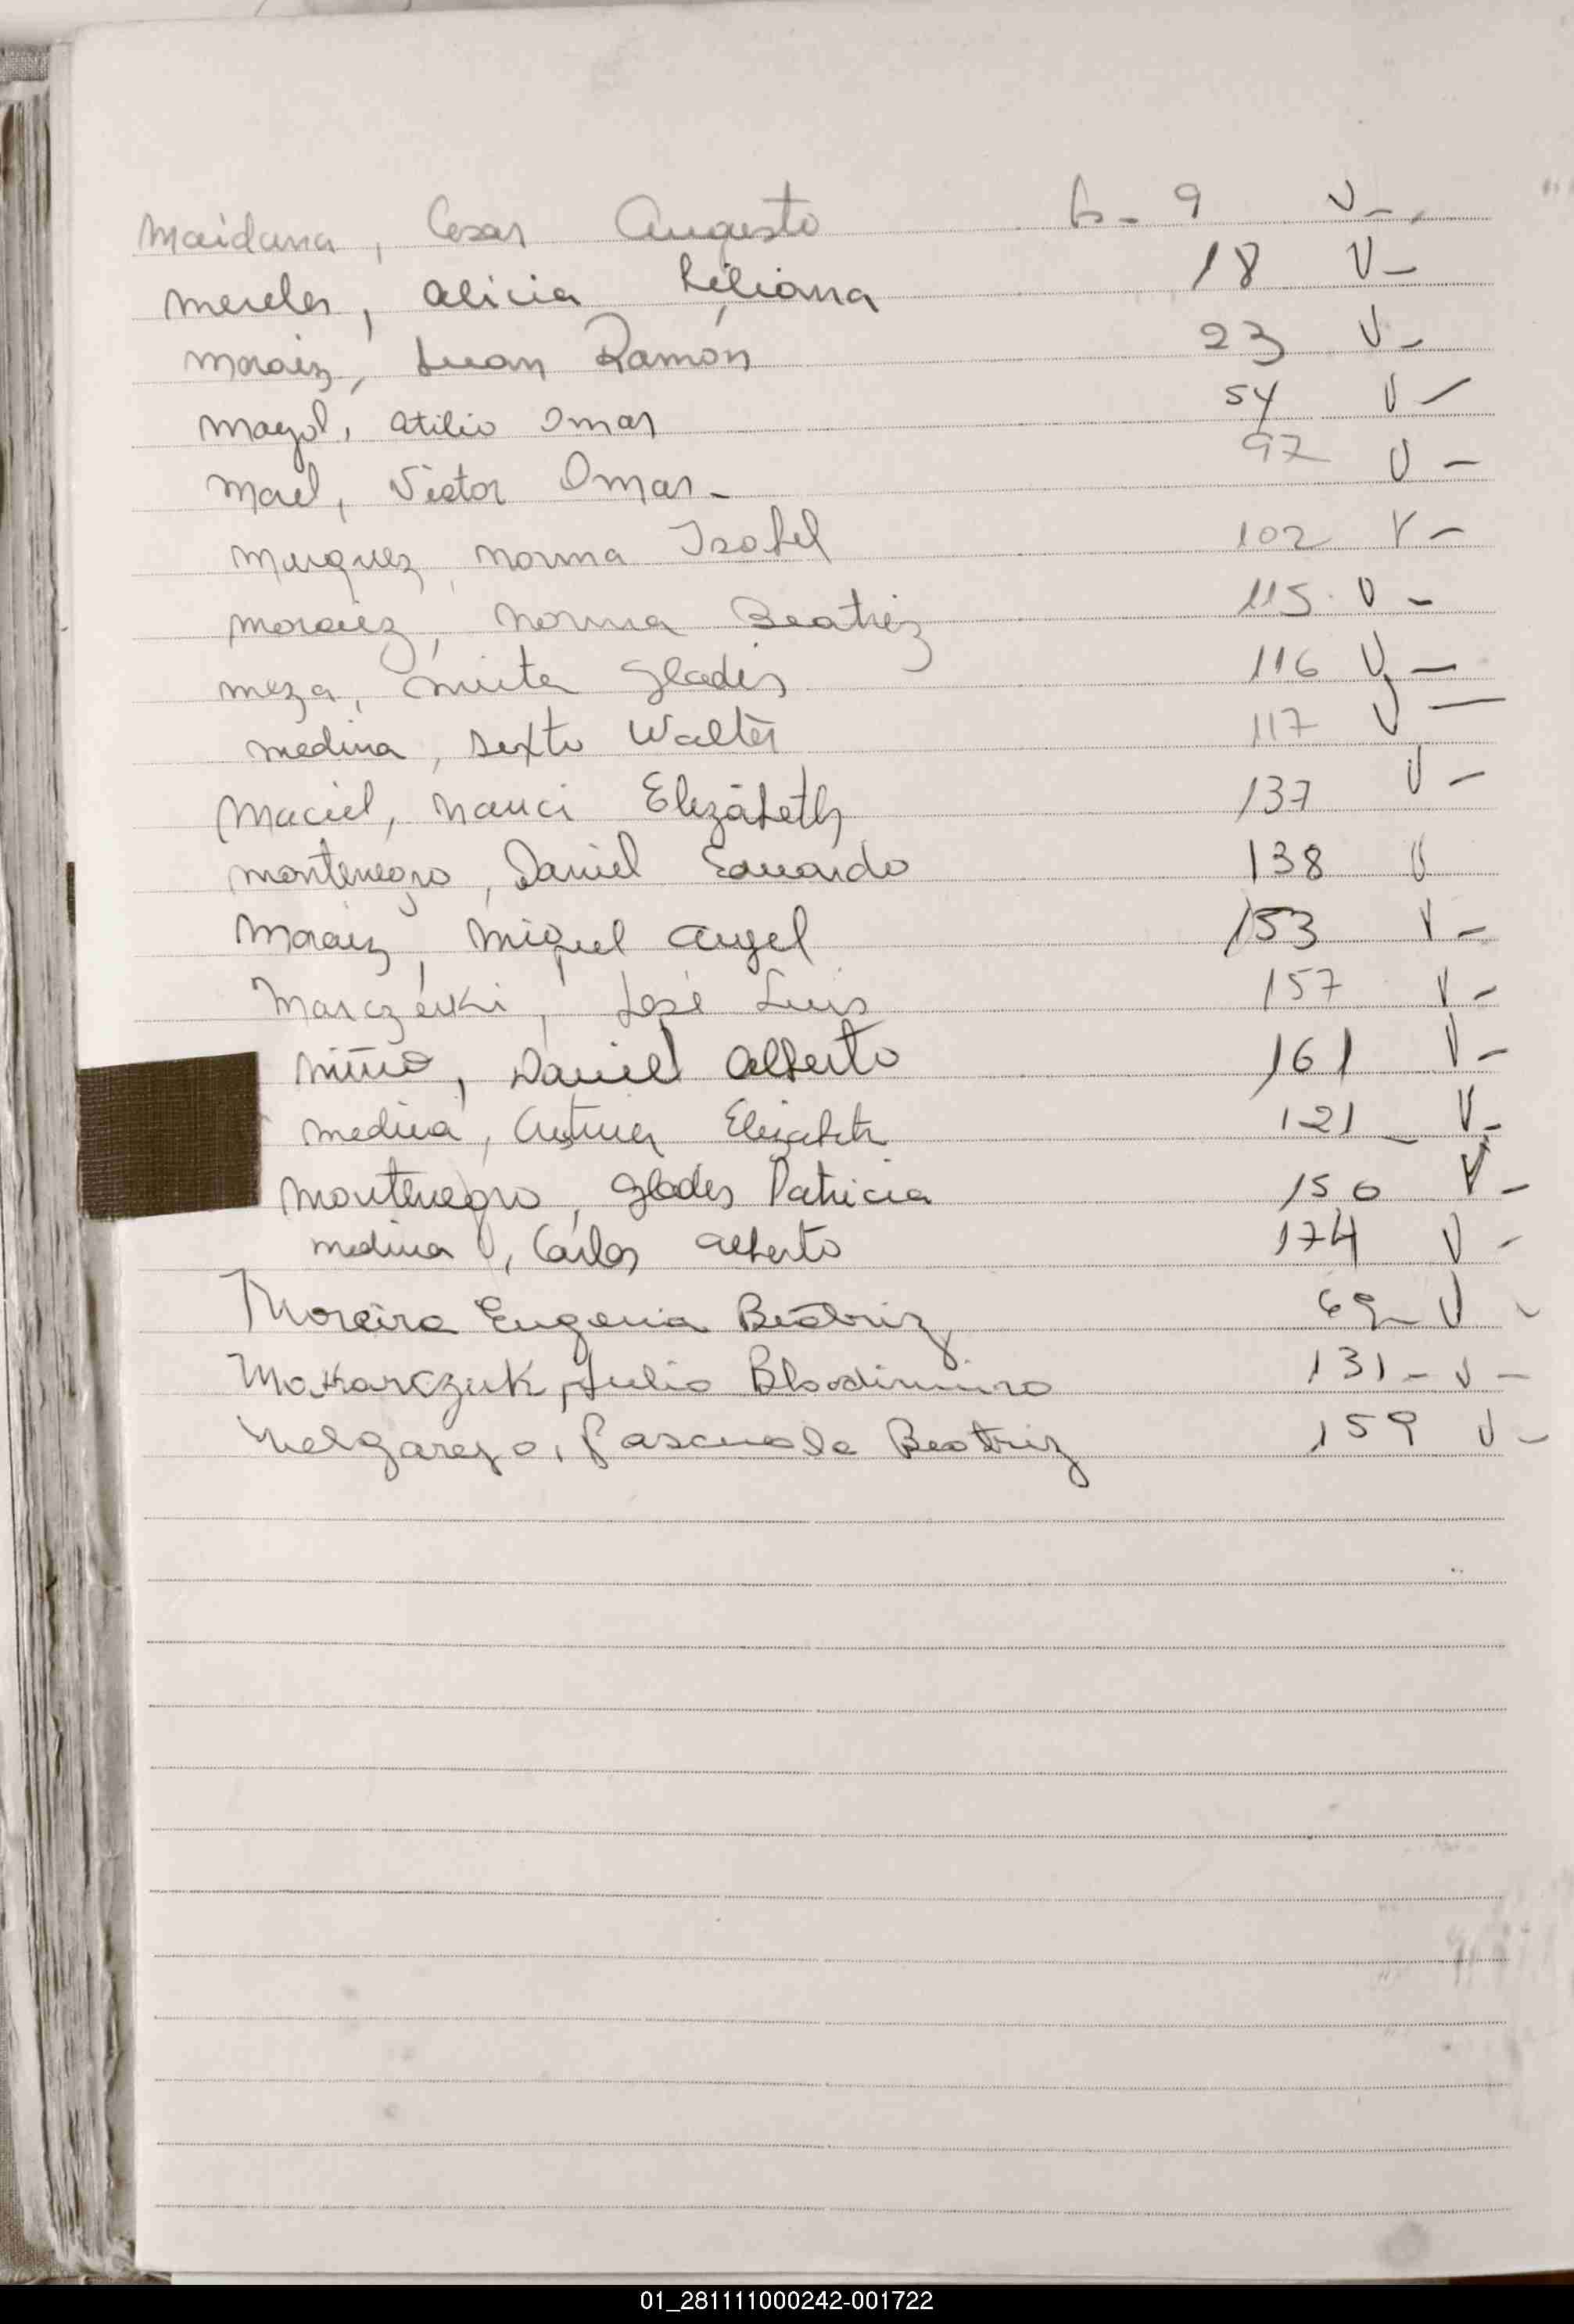 Maidana, Cesar Augusto fs - 9 V - .
Mereles, Alicia Liliana 18 V -
Moraiz, Juan Ramón 23 V -
Mayol, Atilio Omar 54 V -
Victor Omar - 97 V -
Marquez, Norma Isabel 102 V -
Moraiz, Norma Beatriz 115 V -
Meza, Mirta Gladis 116 V -
Medina, Sixto Walter 117 V -
Maciel, Nanci Elizabeth 137 V -
Montenegro, Daniel Eduardo 138 V
Moraiz, Miguel Angel 153 V -
José Luis 157 V -
Miño, Daniel Alberto 161 V -
Medina, Elizabeth 121 - V -
Montenegro, Glades Patricia 150 V -
Medina, Carlos Alberto 174 V -
Moreira Eugenia Beatriz 69 V -
Makarczuk, Julio Bloodimiro 131 - V -
Melgarejo, Pascuala Beatriz 159 V -
01_281111000242-001722